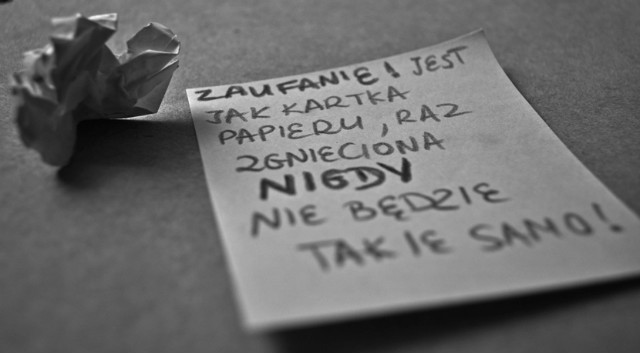 ZAUFANIE! JEST
JAK KARTKA
PAPIERU, RAZ
ZGNIECIONA
NIGDY
NIE BĘDZIE
TAKIE SAMO!